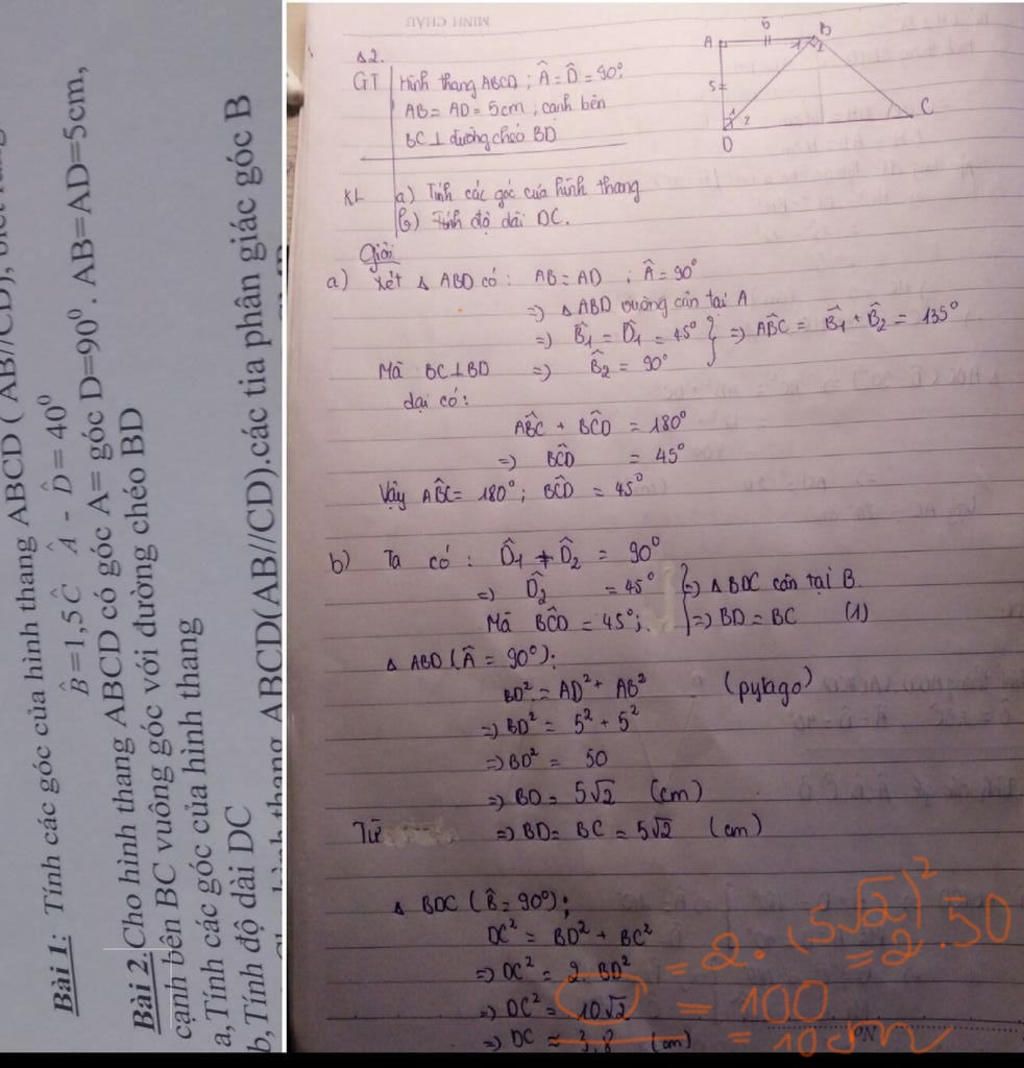 Bài 1: Tính các góc của hình thang ABCD ( AB//CD), biết rằng
B̂=1,5Ĉ Â - D̂= 40⁰
Bài 2. Cho hình thang ABCD có góc A= góc D=90⁰. AB=AD=5cm,
cạnh bên BC vuông góc với đường chéo BD
a,Tính các góc của hình thang
b,Tính độ dài DC
hình thang ABCD(AB//CD).các tia phân giác góc B
MINH CHÂU
2.
GT Hình thang ABCD ; Â = D̂ = 90⁰;
AB = AD = 5cm, cạnh bên
BC ⊥ đường chéo BD
KL a) Tính các góc của hình thang
b) Tính độ dài DC.
A 5 B
1 2
5
1 2
D C
Giải
a) Xét Δ ABD có : AB = AD ; Â = 90⁰
=> Δ ABD vuông cân tại A
=> B̂₁ = D̂₁ = 45⁰ } => ABĈ = B̂₁ + B̂₂ = 135⁰
Mà BC⊥BD => B̂₂ = 90⁰
dại có:
AB̂C + BĈD = 180⁰
=> BĈD = 45⁰
Vậy AB̂C = 180⁰; BĈD = 45⁰
b) Ta có : D̂₁ + D̂₂ = 90⁰
=> D̂₂ = 45⁰ } => Δ BDC cân tại B.
Mà BĈD = 45⁰; => BD = BC (1)
Δ ABD ( Â = 90⁰):
BD² = AD² + AB² (pytago)
=> BD² = 5² + 5²
=> BD² = 50
=> BD = 5√2 (cm)
Từ => BD = BC = 5√2 (cm)
Δ BDC ( B̂ = 90⁰);
DC² = BD² + BC²
=> DC² = 2. BD² = 2.(5√2)² = 2.50
=> DC² = 10√2 = 100
=> DC ≈ 3,8 (cm) = 10cm